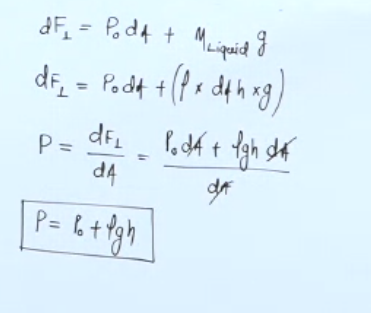 dF⊥ = P₀dA + M_Liquid g
dF⊥ = P₀dA + (ρ × dA h × g)
P = dF⊥/dA = (P₀dA + ρgh dA)/dA
P = P₀ + ρgh